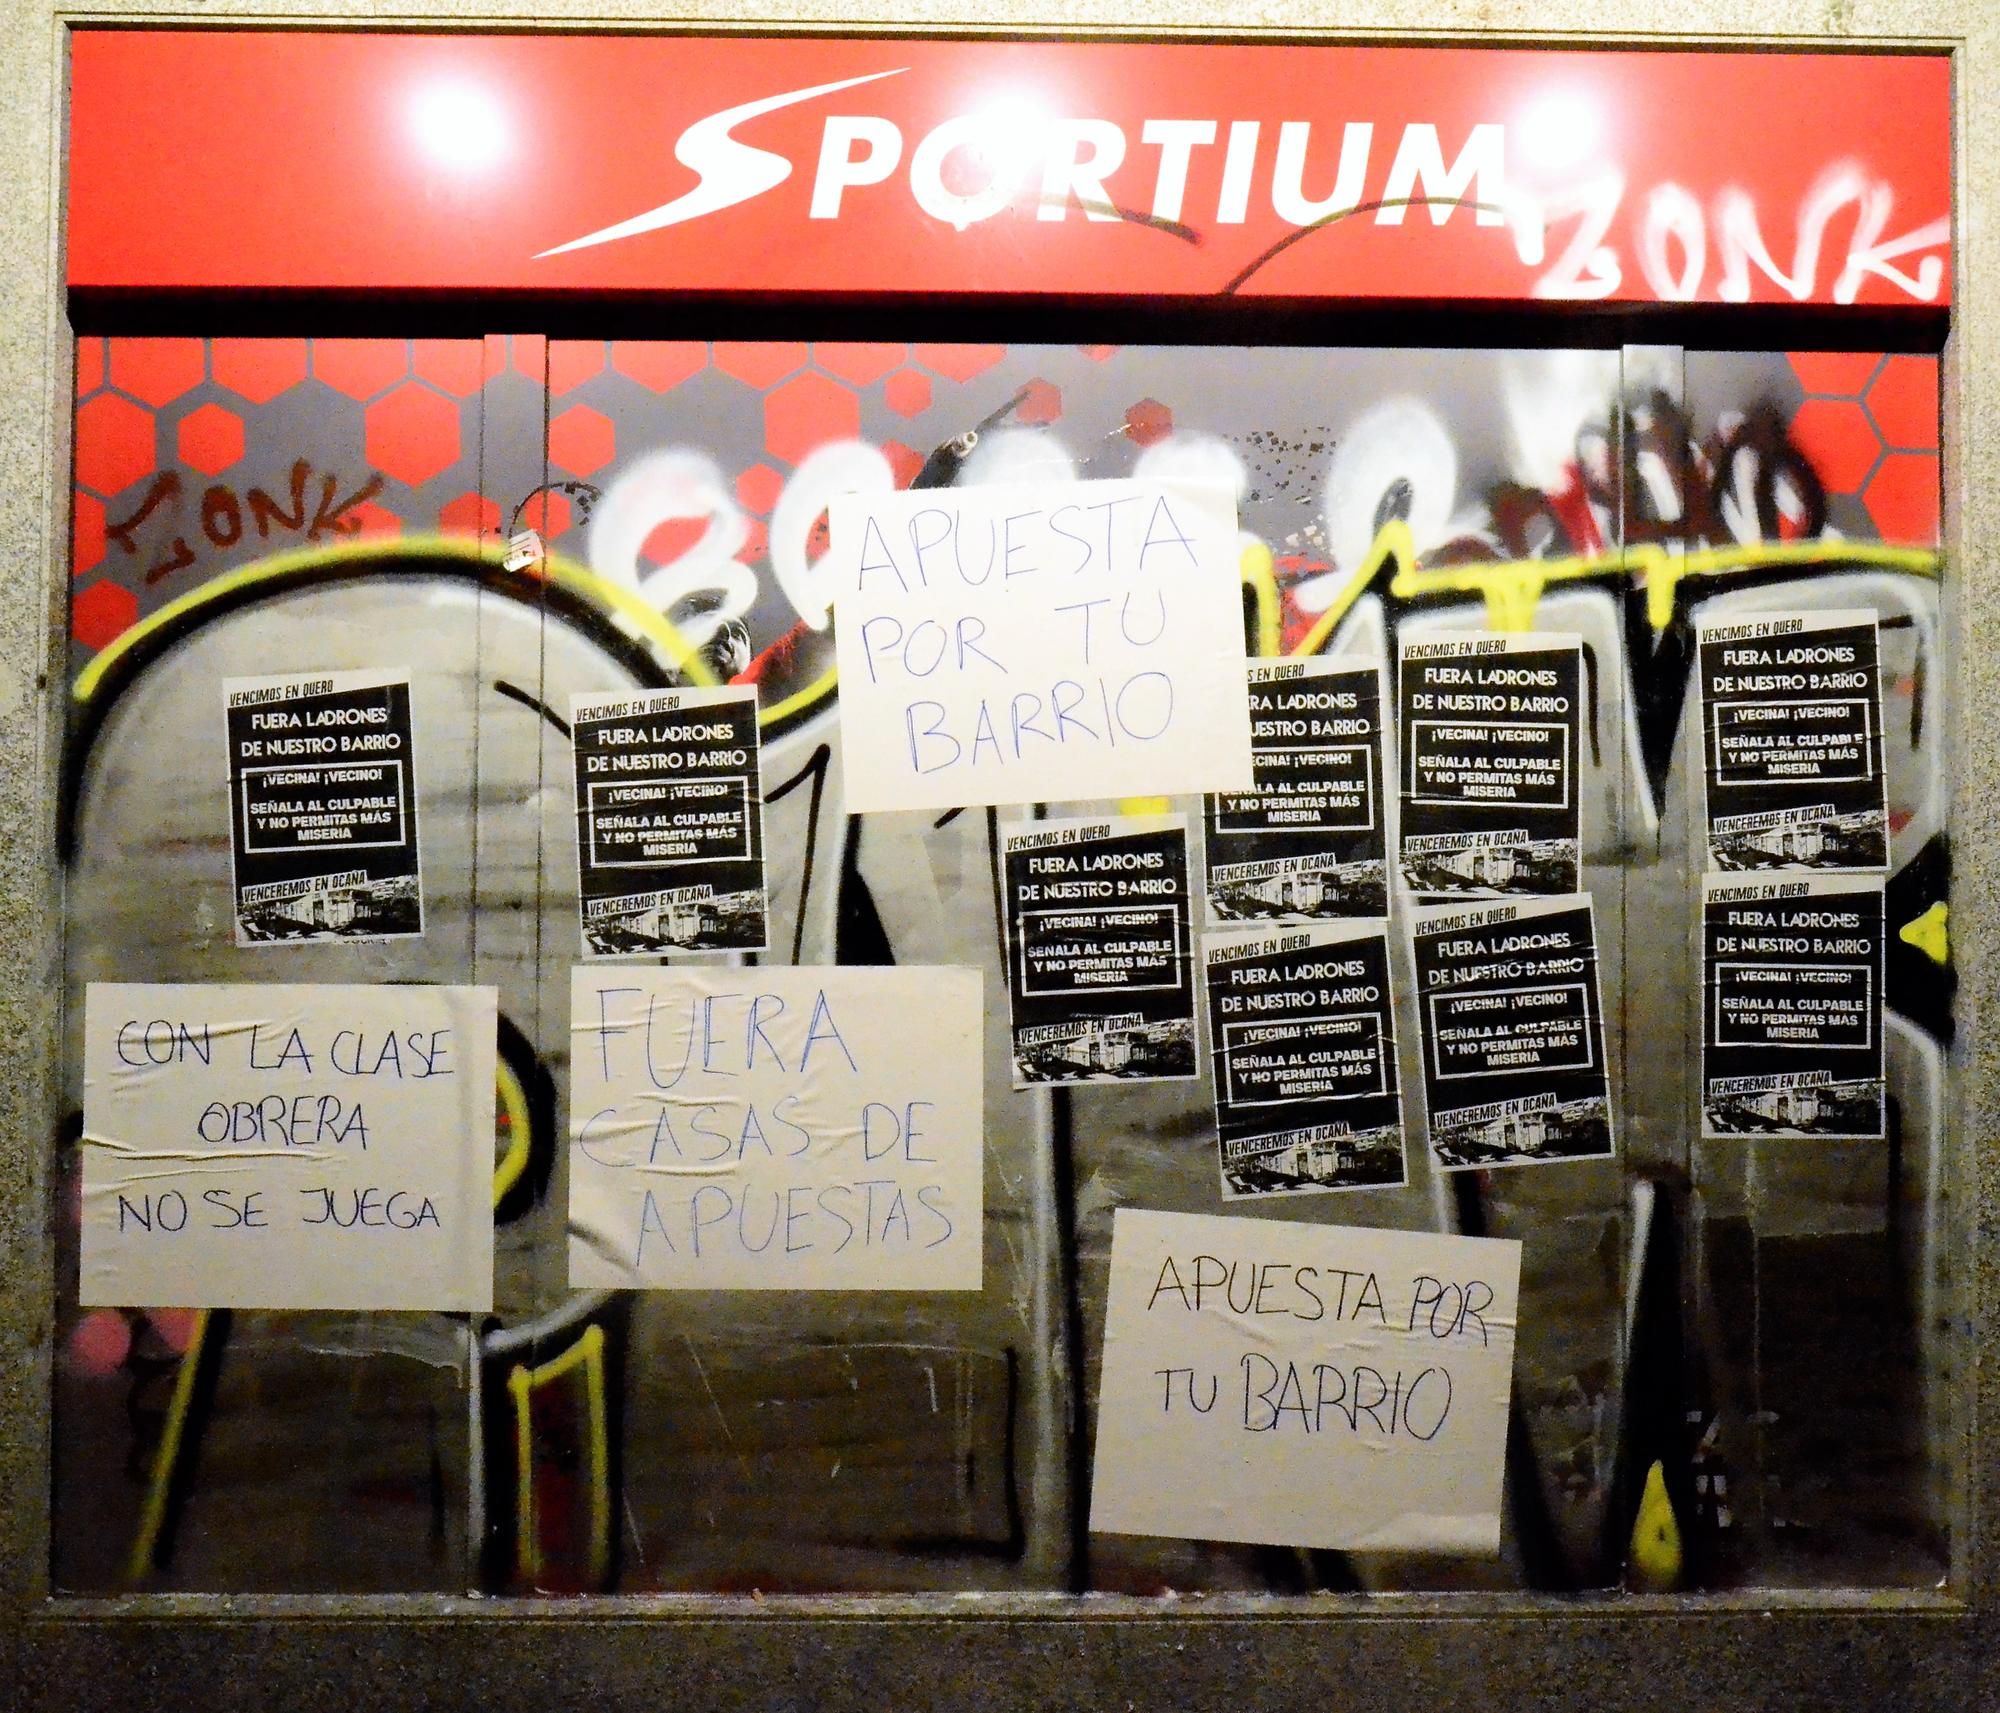 SPORTIUM
ZONK
ZONK
APUESTA
POR TU
BARRIO
VENCIMOS EN QUERO
FUERA LADRONES
DE NUESTRO BARRIO
¡VECINA! ¡VECINO!
SEÑALA AL CULPABLE
Y NO PERMITAS MÁS
MISERIA
VENCEREMOS EN OCAÑA
VENCIMOS EN QUERO
FUERA LADRONES
DE NUESTRO BARRIO
¡VECINA! ¡VECINO!
SEÑALA AL CULPABLE
Y NO PERMITAS MÁS
MISERIA
VENCEREMOS EN OCAÑA
S EN QUERO
ERA LADRONES
UESTRO BARRIO
ECINA! ¡VECINO!
SEÑALA AL CULPABLE
Y NO PERMITAS MÁS
MISERIA
VENCEREMOS EN OCAÑA
VENCIMOS EN QUERO
FUERA LADRONES
DE NUESTRO BARRIO
¡VECINA! ¡VECINO!
SEÑALA AL CULPABLE
Y NO PERMITAS MÁS
MISERIA
VENCEREMOS EN OCAÑA
VENCIMOS EN QUERO
FUERA LADRONES
DE NUESTRO BARRIO
¡VECINA! ¡VECINO!
SEÑALA AL CULPABLE
Y NO PERMITAS MÁS
MISERIA
VENCEREMOS EN OCAÑA
VENCIMOS EN QUERO
FUERA LADRONES
DE NUESTRO BARRIO
¡VECINA! ¡VECINO!
SEÑALA AL CULPABLE
Y NO PERMITAS MÁS
MISERIA
VENCEREMOS EN OCAÑA
VENCIMOS EN QUERO
FUERA LADRONES
DE NUESTRO BARRIO
¡VECINA! ¡VECINO!
SEÑALA AL CULPABLE
Y NO PERMITAS MÁS
MISERIA
VENCEREMOS EN OCAÑA
VENCIMOS EN QUERO
FUERA LADRONES
DE NUESTRO BARRIO
¡VECINA! ¡VECINO!
SEÑALA AL CULPABLE
Y NO PERMITAS MÁS
MISERIA
VENCEREMOS EN OCAÑA
VENCIMOS EN QUERO
FUERA LADRONES
DE NUESTRO BARRIO
¡VECINA! ¡VECINO!
SEÑALA AL CULPABLE
Y NO PERMITAS MÁS
MISERIA
VENCEREMOS EN OCAÑA
CON LA CLASE
OBRERA
NO SE JUEGA
FUERA
CASAS DE
APUESTAS
APUESTA POR
TU BARRIO